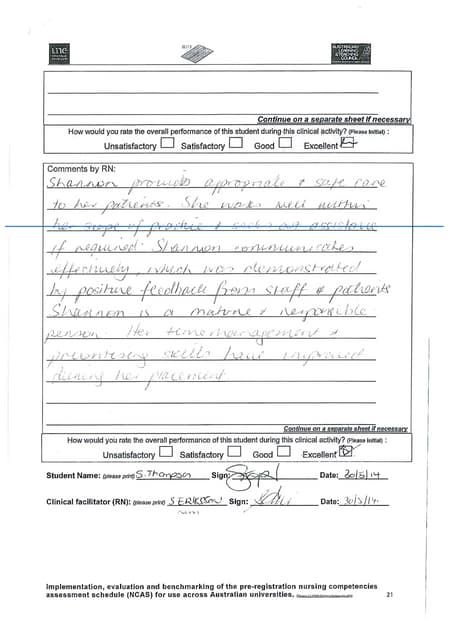 une
AUSTRALIAN
LEARNING
& TEACHING
COUNCIL
Continue on a separate sheet if necessary
How would you rate the overall performance of this student during this clinical activity? (Please Initial) :
Unsatisfactory Satisfactory Good Excellent
Comments by RN:
Shannon provides appropriate & safe care
to her patients. She works well within
her scope of practice & seeks out assistance
if required. Shannon communicates
effectively, which was demonstrated
by positive feedback from staff & patients
Shannon is a mature & responsible
person. Her time management &
prioritising skills have improved
during her placement.
Continue on a separate sheet if necessary
How would you rate the overall performance of this student during this clinical activity? (Please Initial) :
Unsatisfactory Satisfactory Good Excellent
Student Name: (please print) S.Thompson Sign: Date: 30/5/14
Clinical facilitator (RN): (please print) S ERIKSSON Sign: Date: 30/5/14
Implementation, evaluation and benchmarking of the pre-registration nursing competencies
assessment schedule (NCAS) for use across Australian universities.
21